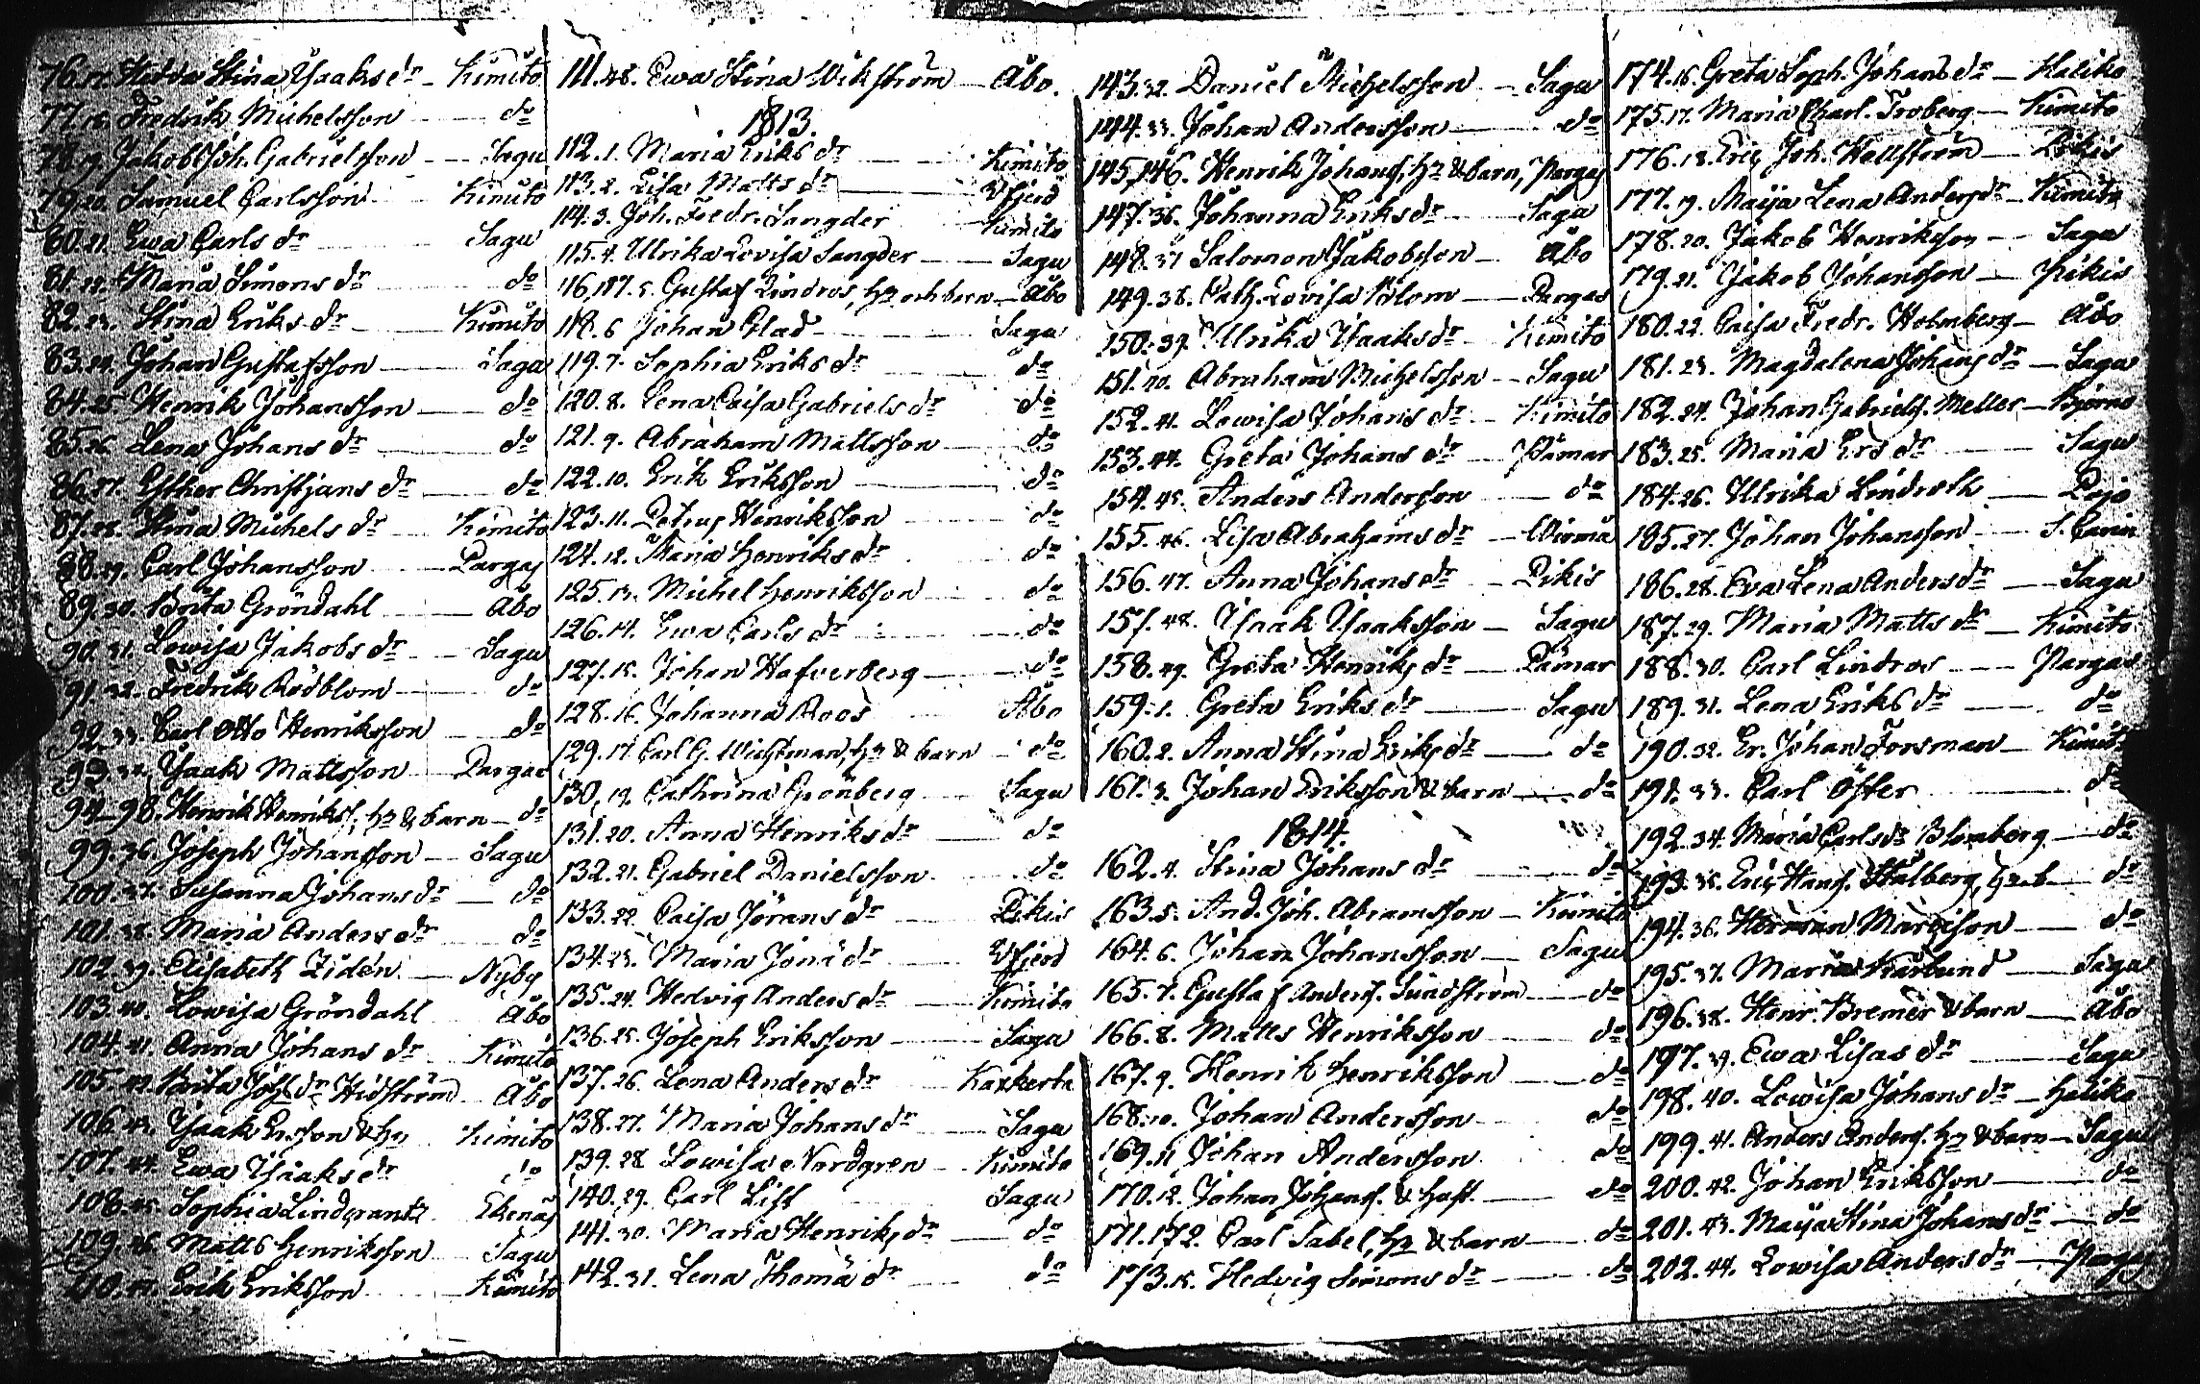 76.17. Hedda Stina Isaks dr Kimito
77.18. Fredrik Michelsson do
78.19. Jakob Joh. Gabrielsson Sagu
79.20. Samuel Carlsson Kimito
80.21. Ewa Carls dr Sagu
81.22. Maria Simons dr do
82.23. Stina Eriks dr Kimito
83.24. Johan Gustafsson Sagu
84.25. Henrik Johansson do
85.26. Lena Johans dr do
86.27. Esther Christjans dr do
87.28. Stina Michels dr Kimito
88.29. Carl Johansson Pargas
89.30. Brita Gröndahl Åbo
90.31. Lowisa Jakobs dr Sagu
91.32. Fredrik Rosblom do
92.33. Carl Otto Henriksson do
93.34. Isaak Mattsson Pargas
94-98. Henrik Henrikss. hu & barn do
99.36. Joseph Johansson Sagu
100.37. Susanna Johans dr do
101.38. Maria Anders dr do
102.39. Elisabeth Zidén Nyby
103.40. Lowisa Gröndahl Åbo
104.41. Anna Johans dr Kimito
105.42. Brita Johs dr Hidström Åbo
106.43. Isaak Ersson & hu Kimito
107.44. Ewa Isaaks dr do
108.45. Sophia Lindqrantz Ekenäs
109.46. Matts Henriksson Sagu
110.47. Erik Eriksson Kimito
111.48. Ewa Stina Wikström Åbo.
1813.
112.1. Maria Eriks dr Kimito
113.2. Lisa Matts dr Vfjerd
114.3. Joh. Fredr. Sangder Kimito
115.4. Ulrika Lovisa Sangder Sagu
116,117.5. Gustaf Lindros, hu och barn Åbo
118.6. Johan Glad Sagu
119.7. Sophia Eriks dr do
120.8. Lena Caisa Gabriels dr do
121.9. Abraham Mattsson do
122.10. Erik Eriksson do
123.11. Petrus Henriksson do
124.12. Maria Henriks dr do
125.13. Michel Henriksson do
126.14. Ewa Carls dr do
127.15. Johan Hafverberg do
128.16. Johanna Roos Åbo
129.17. Carl G. Wichtman, hu & barn do
130.19. Cathrina Grönberg Sagu
131.20. Anna Henriks dr do
132.21. Gabriel Danielsson do
133.22. Caisa Jörans dr Pikis
134.23. Maria Jonä dr Vfjerd
135.24. Hedvig Anders dr Kimito
136.25. Joseph Eriksson Sagu
137.26. Lena Anders dr Kaxkerta
138.27. Maria Johans dr Sagu
139.28. Lowisa Nordgren Kimito
140.29. Carl List Sagu
141.30. Maria Henriks dr do
142.31. Lena Thomä dr do
143.32. Daniel Michelsson Sagu
144.33. Johan Andersson do
145,146. Henrik Johans., hu & barn, Pargas
147.36. Johanna Eriks dr Sagu
148.37. Salomon Jakobsson Åbo
149.38. Cath. Lovisa Blom Pargas
150.39. Ulrika Isaaks dr Kimito
151.40. Abraham Michelsson Sagu
152.41. Lowisa Johans dr Kimito
153.44. Greta Johans dr Pämar
154.45. Anders Andersson do
155.46. Lisa Abrahams dr Wirmå
156.47. Anna Johans dr Pikis
157.48. Isaak Isaaksson Sagu
158.49. Greta Henriks dr Pämar
159.1. Greta Eriks dr Sagu
160.2. Anna Stina Eriks dr do
161.3. Johan Eriksson & barn do
1814.
162.4. Stina Johans dr do
163.5. And. Joh. Abramsson Kimito
164.6. Johan Johansson Sagu
165.7. Gustaf Anderss. Sundström do
166.8. Matts Henriksson do
167.9. Henrik Henriksson do
168.10. Johan Andersson do
169.11. Johan Andersson do
170.12. Johan Johanss. & hust. do
171.172. Carl Sabel, hu & barn do
173.15. Hedvig Simons dr do
174.16. Greta Soph. Johans dr Haliko
175.17. Maria Charl. Troberg Kimito
176.18. Eric Joh. Hellström Pikis
177.19. Maija Lena Anders dr Kimito
178.20. Jakob Henriksson Sagu
179.21. Jakob Johansson Pikis
180.22. Caisa Fredr. Holmberg Åbo
181.23. Magdalena Johans dr Sagu
182.24. Johan Gabriels. Meller Bjerno
183.25. Maria Ers dr Sagu
184.26. Ulrika Lindroth Pojo
185.27. Johan Johansson S. Carin
186.28. Eva Lena Anders dr Sagu
187.29. Maria Matts dr Kimito
188.30. Carl Lindros Pargas
189.31. Lena Eriks dr do
190.32. Er. Johan Forsman Kimito
191.33. Carl Öster do
192.34. Maria Carls dr Blomberg do
193.35. Eric Hans. Stålberg, do
194.36. Herman Marcison do
195.37. Maria Karlund Sagu
196.38. Henr. Bremer & barn Åbo
197.39. Ewa Lisas dr Sagu
198.40. Lowisa Johans dr Haliko
199.41. Anders Anders. hu & barn Sagu
200.42. Johan Eriksson do
201.43. Maija Stina Johans dr do
202.44. Lowisa Anders dr Pargas